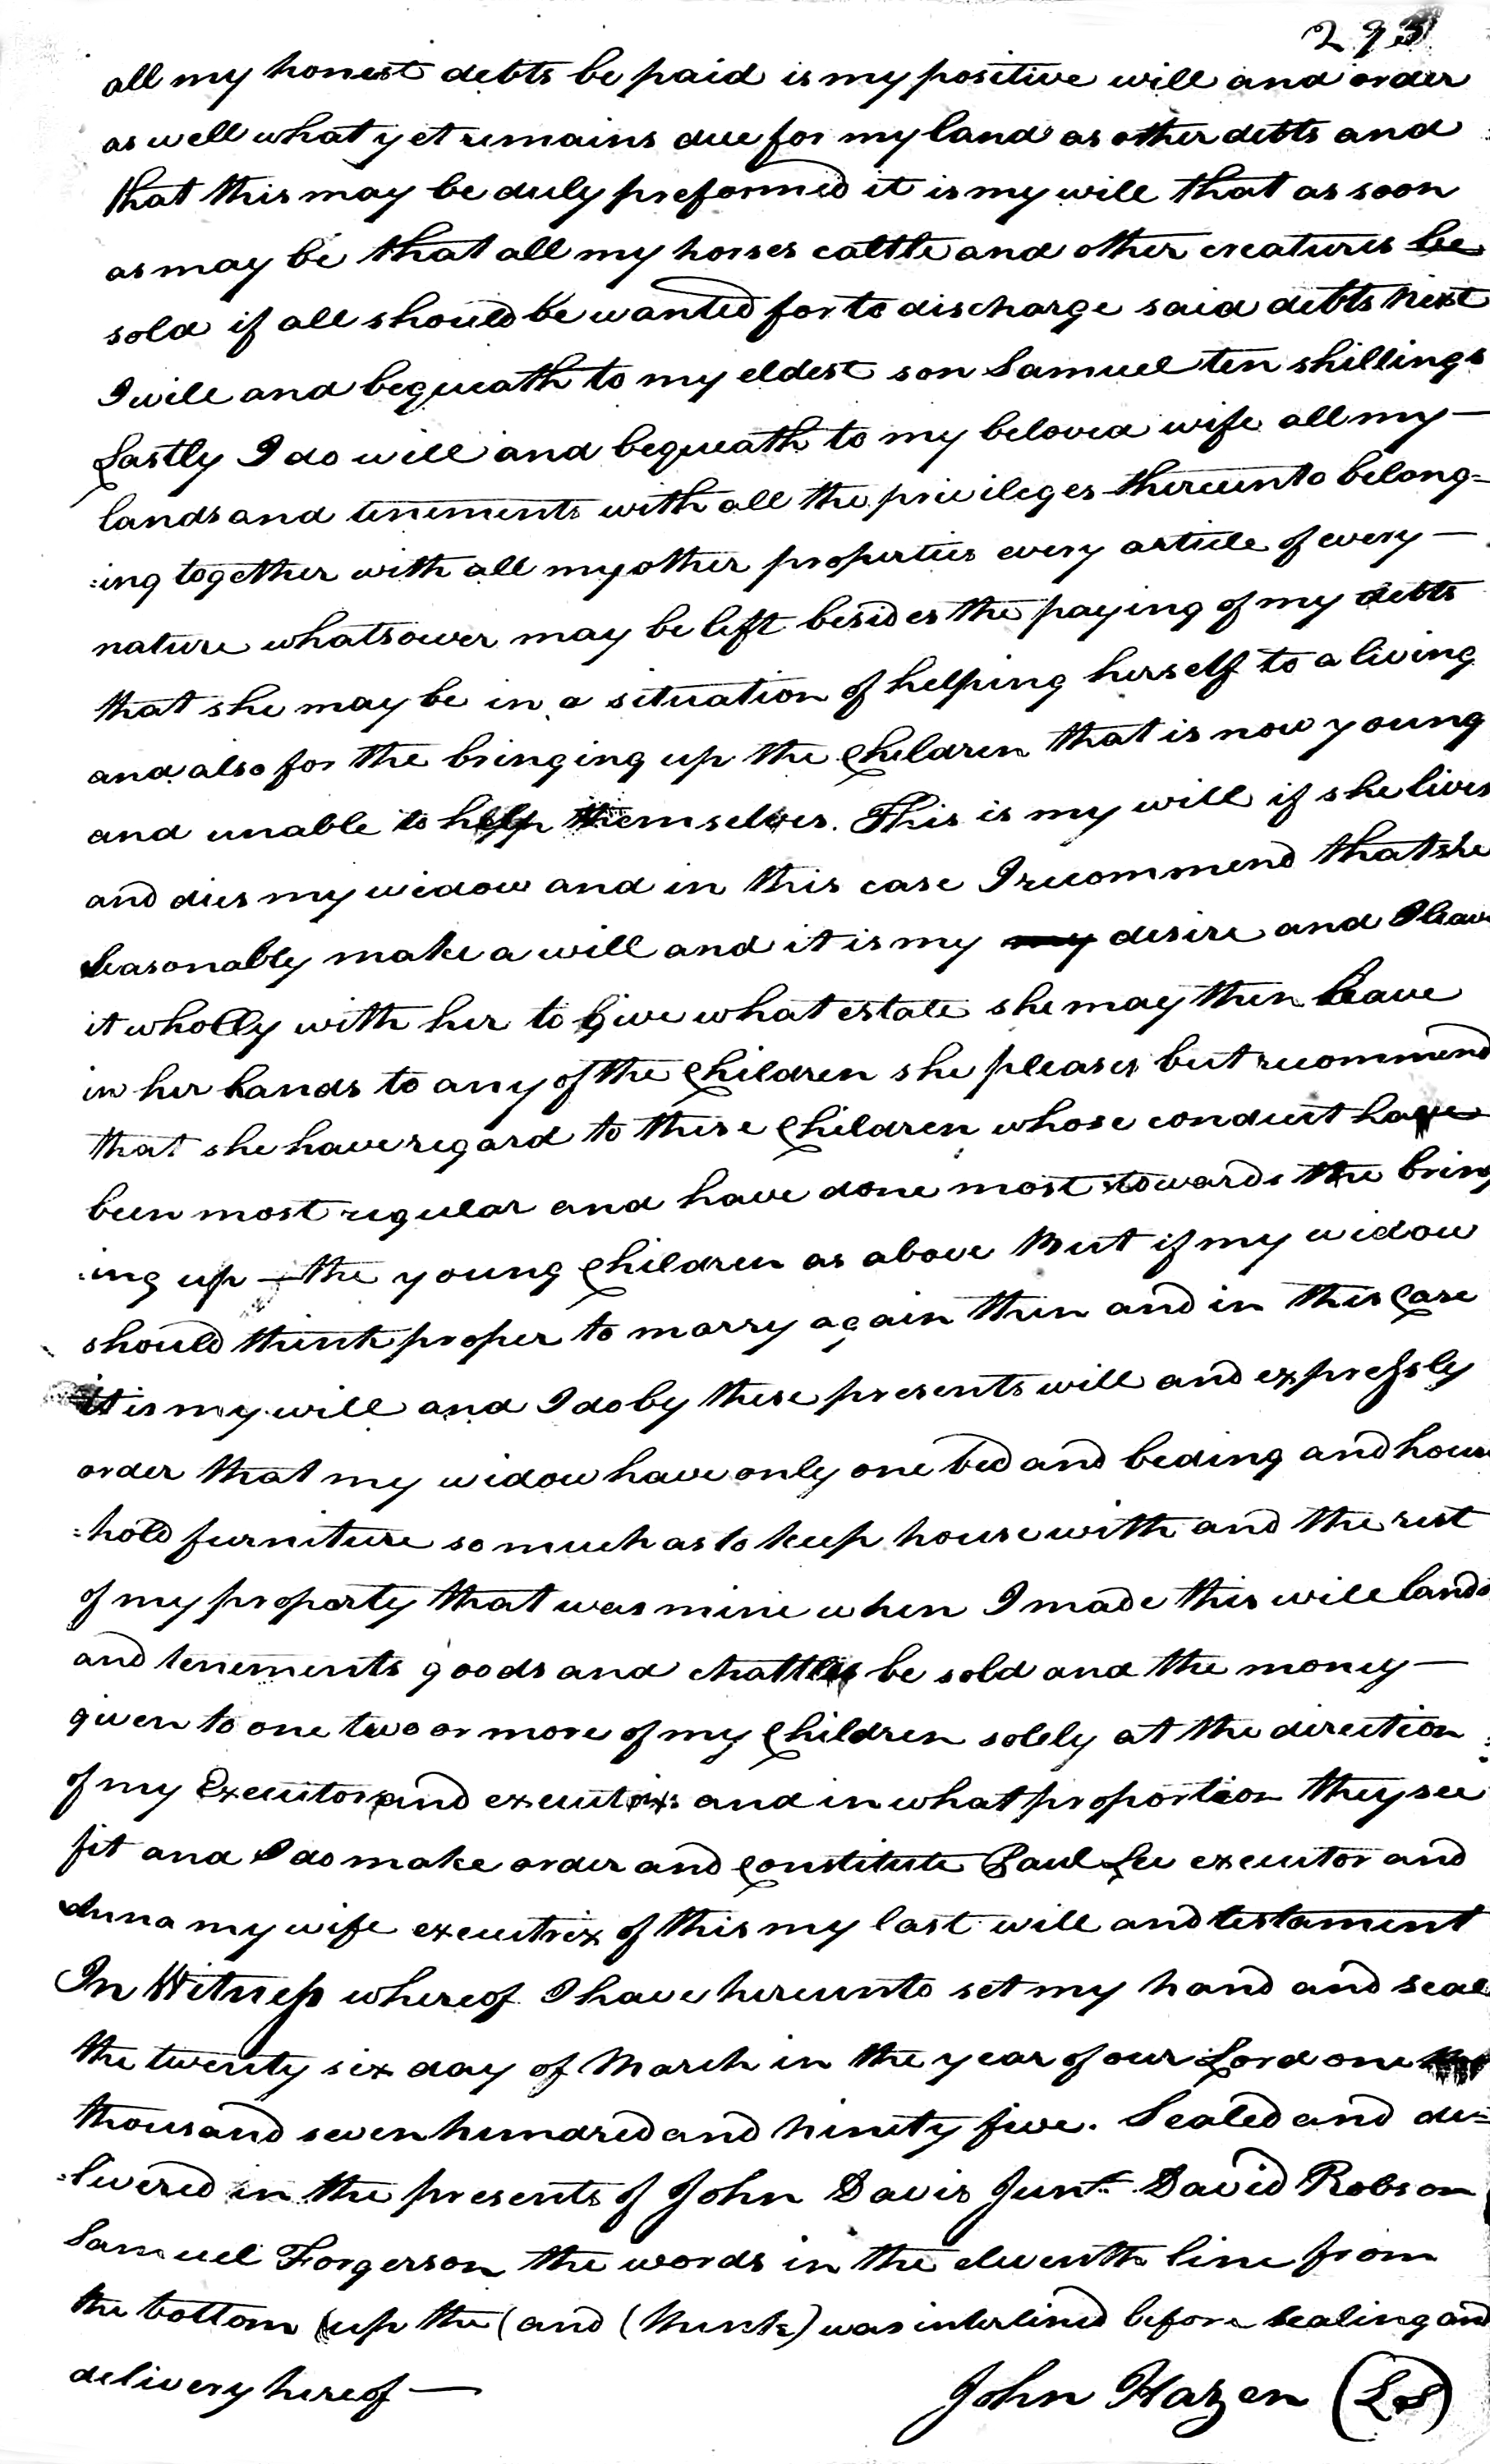 293
all my honest debts be paid is my positive will and order
as well what yet remains due for my land as other debts and
that this may be duly preformed it is my will that as soon
as may be that all my horses cattle and other creatures be
sold if all should be wanted for to discharge said debts Next
I will and bequeath to my eldest son Samuel ten shillings
Lastly I do will and bequeath to my beloved wife all my —
lands and tenements with all the privileges thereunto belong=
:ing together with all my other properties every article of every —
nature whatsower may be left besides the paying of my debts
that she may be in a situation of helping herself to a living
and also for the bringing up the Children that is now young
and unable to help themselves. This is my will if she lives
and dies my widow and in this case I recommend that she
seasonably make a will and it is my my desire and I leave
it wholly with her to give what estate she may then leave
in her hands to any of the Children she pleases but recommend
that she have regard to these Children whose conduct have
been most regular and have done most towards the bring
:ing up — the young Children as above But if my widow
should think proper to marry again then and in this Case
it is my will and I do by these presents will and expressly
order that my widow have only one bed and beding and house
:hold furniture so much as to keep house with and the rest
of my property that was mine when I made this will lands
and tenements goods and chattles be sold and the money —
given to one two or more of my Children solely at the direction
of my Executor and executrix and in what proportion they see
fit and I do make order and Constitute Paul Lee executor and
Anna my wife executrix of this my last will and testament
In Witness whereof I have hereunto set my hand and seal
the twenty six day of March in the year of our Lord one
thousand seven hundred and ninety five. Sealed and de=
:livered in the presents of John Davis Junr. David Robson
Samuel Forgerson the words in the eleventh line from
the bottom (up the (and (think) was interlined before sealing and
delivery hereof —
John Hazen (LS)